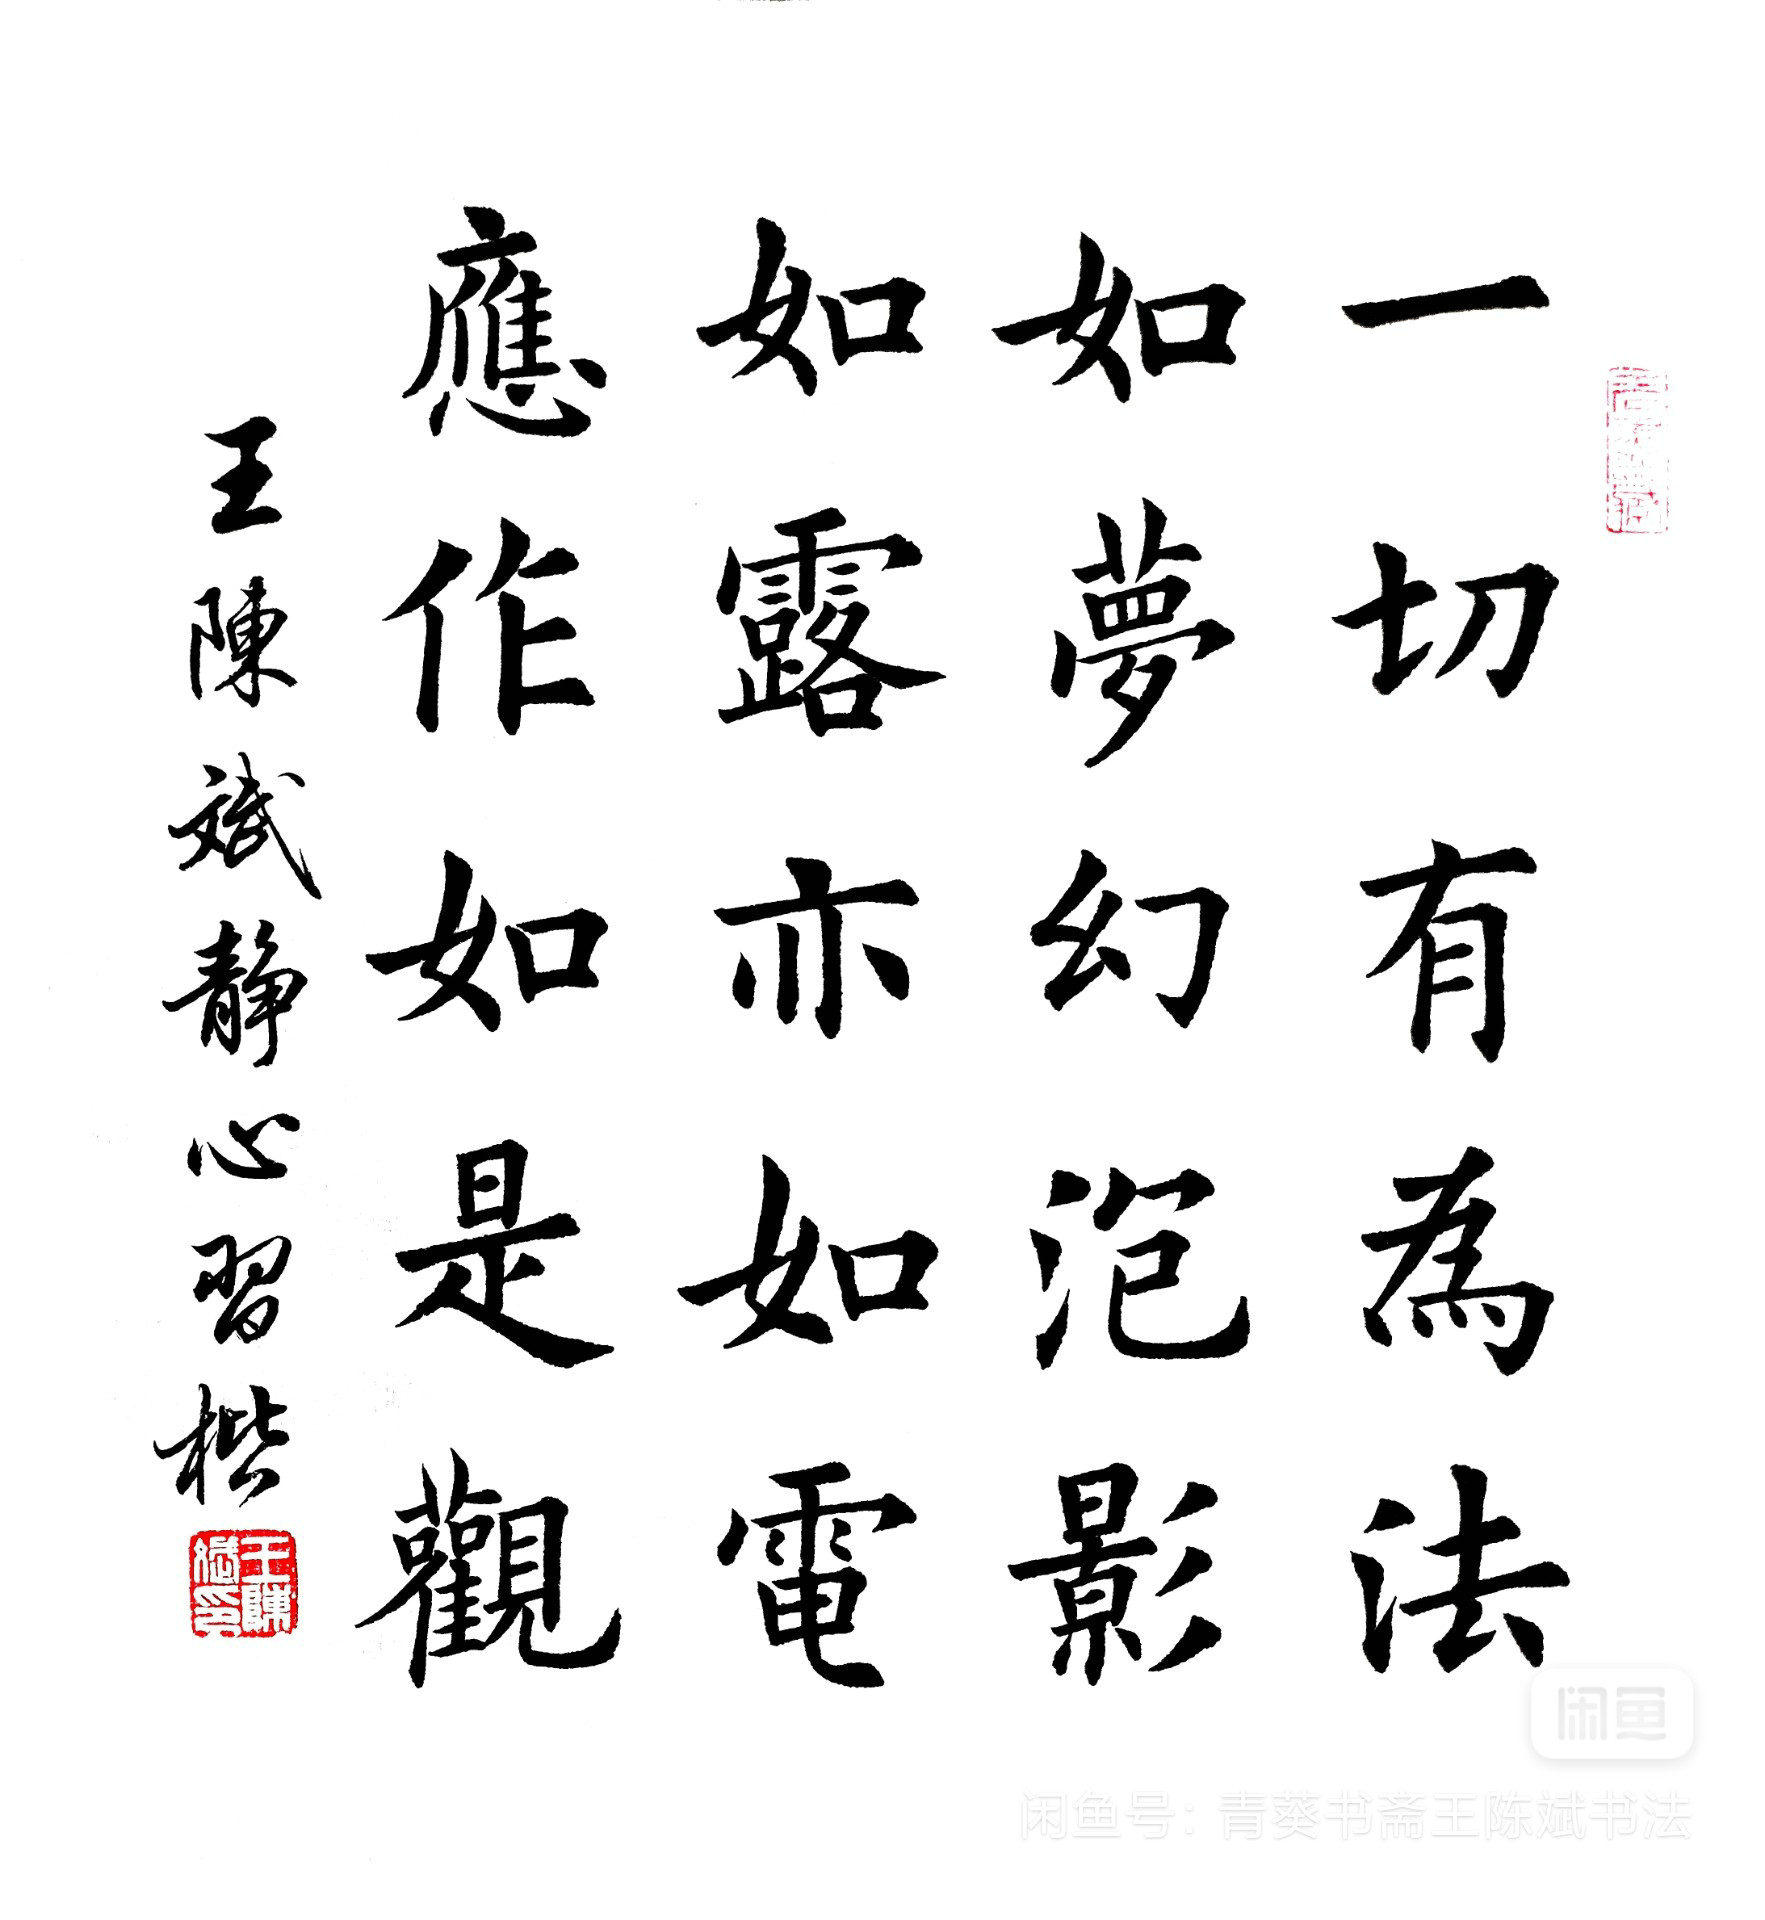 一切有為法
如夢幻泡影
如露亦如電
應作如是觀
王陳斌靜心習楷
王陳斌印
闲鱼
闲鱼号：青葵书斋王陈斌书法